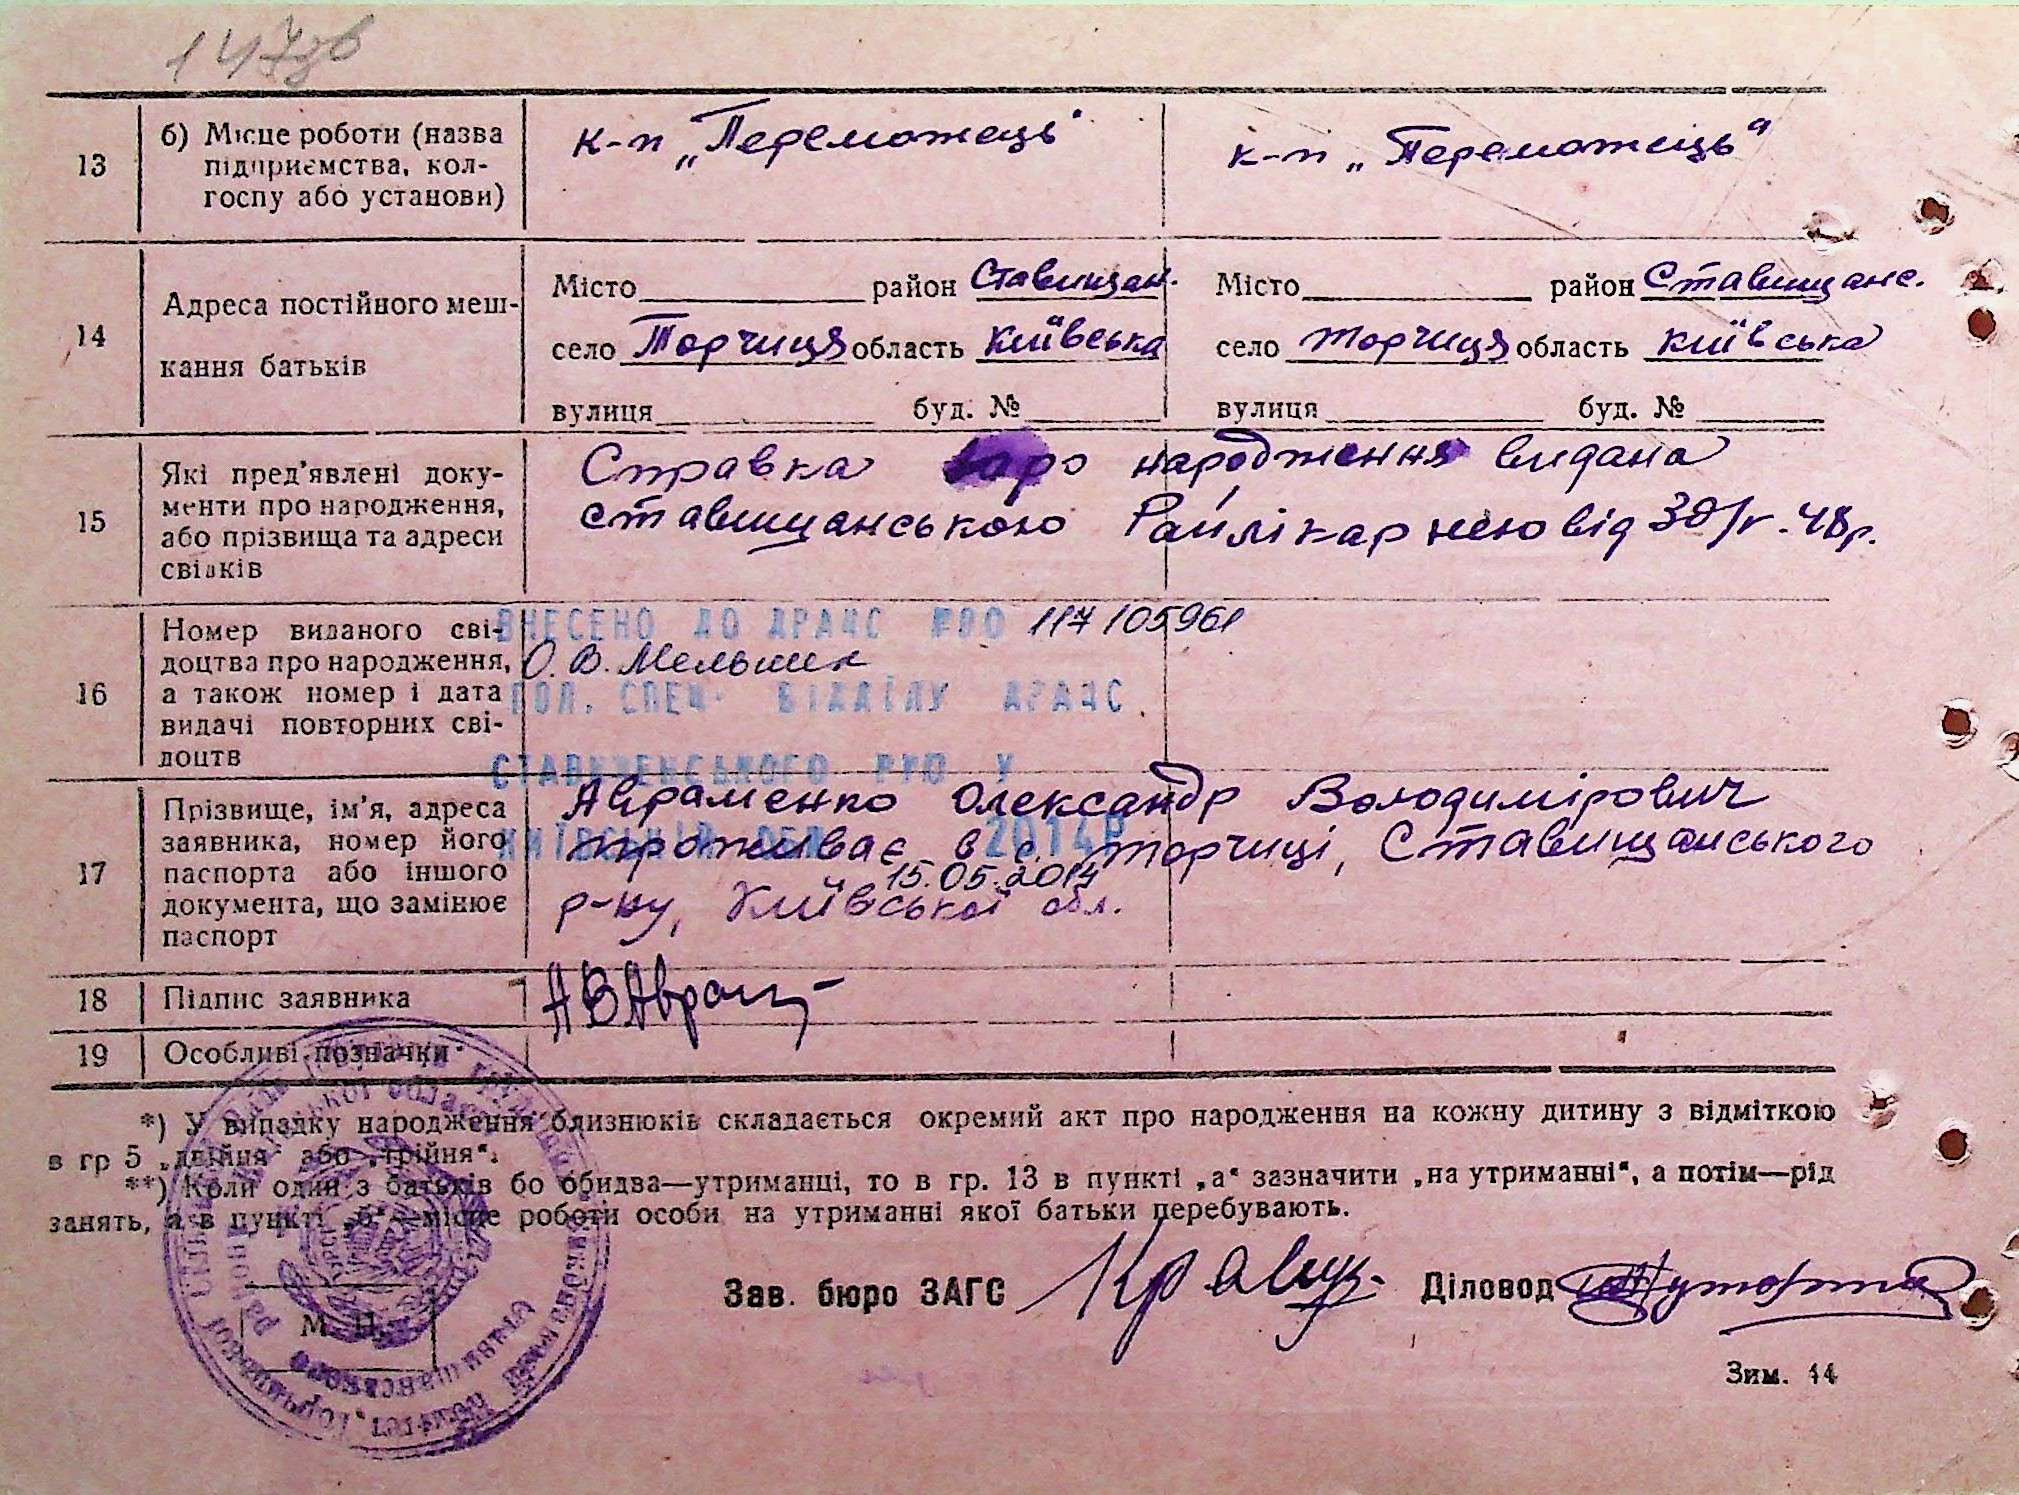 13
б) Місце роботи (назва
підприємства, кол-
госпу або установи)
к-п „Переможець"
к-п „Переможець"
14
Адреса постійного меш-
кання батьків
Місто район Ставищан.
село Торчиця область Київська
вулиця буд. №
Місто район Ставищанс.
село Торчиця область Київська
вулиця буд. №
15
Які пред'явлені доку-
менти про народження,
або прізвища та адреси
свідків
Справка народження видана
Ставищанською Райлікарнею від 48р.
16
Номер виданого сві-
доцтва про народження,
а також номер і дата
видачі повторних сві-
доцтв
ВНЕСЕНО ДО ДРАЦС 117105961
О.В. Мельник
ГОЛ. СПЕЦ. ВІДДІЛУ ДРАЦС
РУЮ У
КИЇВСЬКІЙ ОБЛ. 2014Р
15.05.2014
17
Прізвище, ім'я, адреса
заявника, номер його
паспорта або іншого
документа, що замінює
паспорт
Авраменко Олександр Володимірович
проживає в с. Торчиці, Ставищанського
р-ну, Київської обл.
18
Підпис заявника
19
Особливі позначки
*) У випадку народження близнюків складається окремий акт про народження на кожну дитину з відміткою
в гр 5 „двійня" або „трійня".
**) Коли один з батьків бо обидва—утриманці, то в гр. 13 в пункті „а" зазначити „на утриманні", а потім—рід
занять, а в пункті „б"—місце роботи особи на утриманні якої батьки перебувають.
Зав. бюро ЗАГС
Діловод
М. П.
Зим. 44